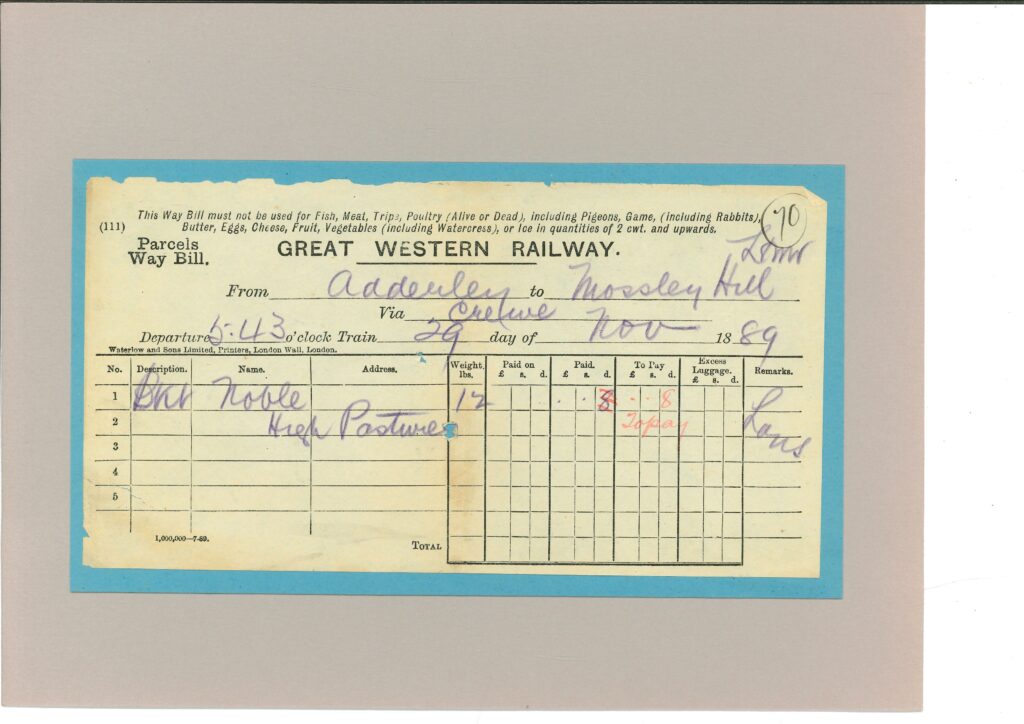 This Way Bill must not be used for Fish, Meat, Tripe, Poultry (Alive or Dead), including Pigeons, Game, (including Rabbits),
(111) Butter, Eggs, Cheese, Fruit, Vegetables (including Watercress), or Ice in quantities of 2 cwt. and upwards.
70
Parcels
Way Bill.
GREAT WESTERN RAILWAY.
From Adderley to Mossley Hill
Via Crewe
Departure 5.43 o'clock Train 29 day of Nov 1889
Waterlow and Sons Limited, Printers, London Wall, London.
No. Description. Name. Address. Weight, lbs. Paid on £ s. d. Paid. £ s. d. To Pay £ s. d. Excess Luggage. £ s. d. Remarks.
1 Bkt Noble 12 8 8
2 High Pastures To pay
3
4
5
1,000,000—7-89.
TOTAL